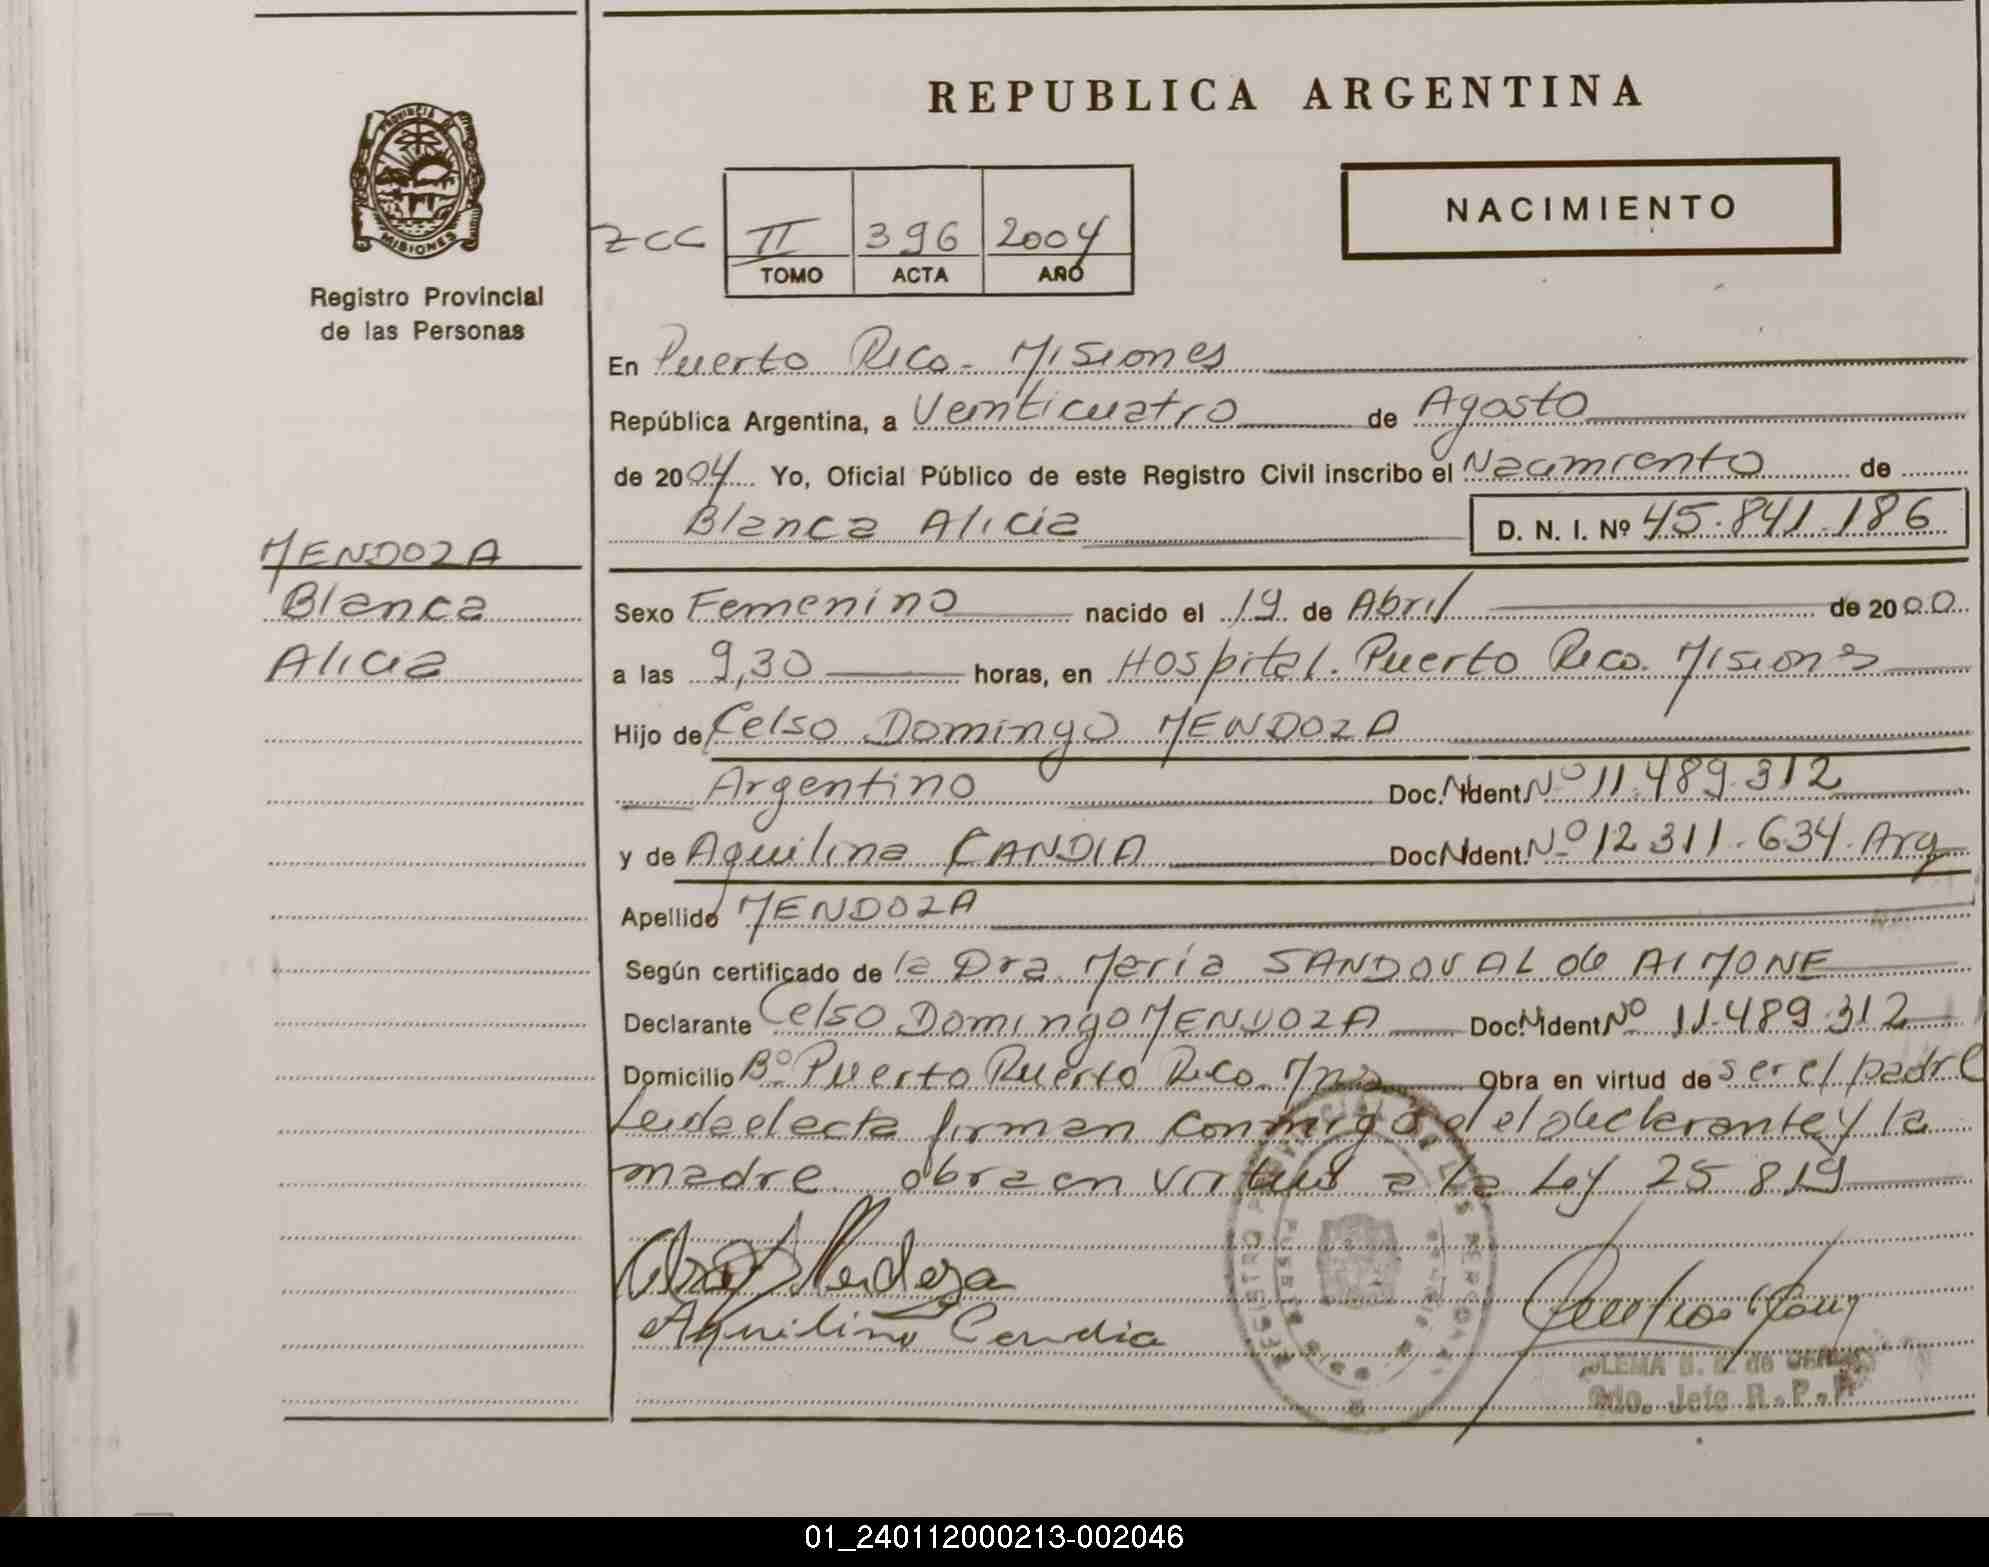 REPUBLICA ARGENTINA
PROVINCIA DE
MISIONES
Registro Provincial
de las Personas
NACIMIENTO
ZCC II 396 2004
TOMO ACTA AÑO
En Puerto Rico - Misiones
República Argentina, a Veinticuatro de Agosto
de 2004 Yo, Oficial Público de este Registro Civil inscribo el Nacimiento de
Blanca Alicia D. N. I. Nº 45.841.186
MENDOZA
Blanca
Alicia
Sexo Femenino nacido el 19 de Abril de 2000
a las 9,30 horas, en Hospital. Puerto Rico. Misiones
Hijo de Celso Domingo MENDOZA
Argentino Doc. Ident. Nº 11.489.312
y de Aquilina CANDIA Doc. Ident. Nº 12.311.634. Arg
Apellido MENDOZA
Según certificado de la Dra. María SANDOVAL de AIMONE
Declarante Celso Domingo MENDOZA Doc. Ident Nº 11.489.312
Domicilio Bº Puerto Puerto Rico Mnes Obra en virtud de ser el padre
Leida el acta firman conmigo el declarante y la
madre obra en virtud a la Ley 25.819
Mendoza
Aquilina Candia
REGISTRO PROVINCIAL DE LAS PERSONAS
Jefe R.P.P
01_240112000213-002046